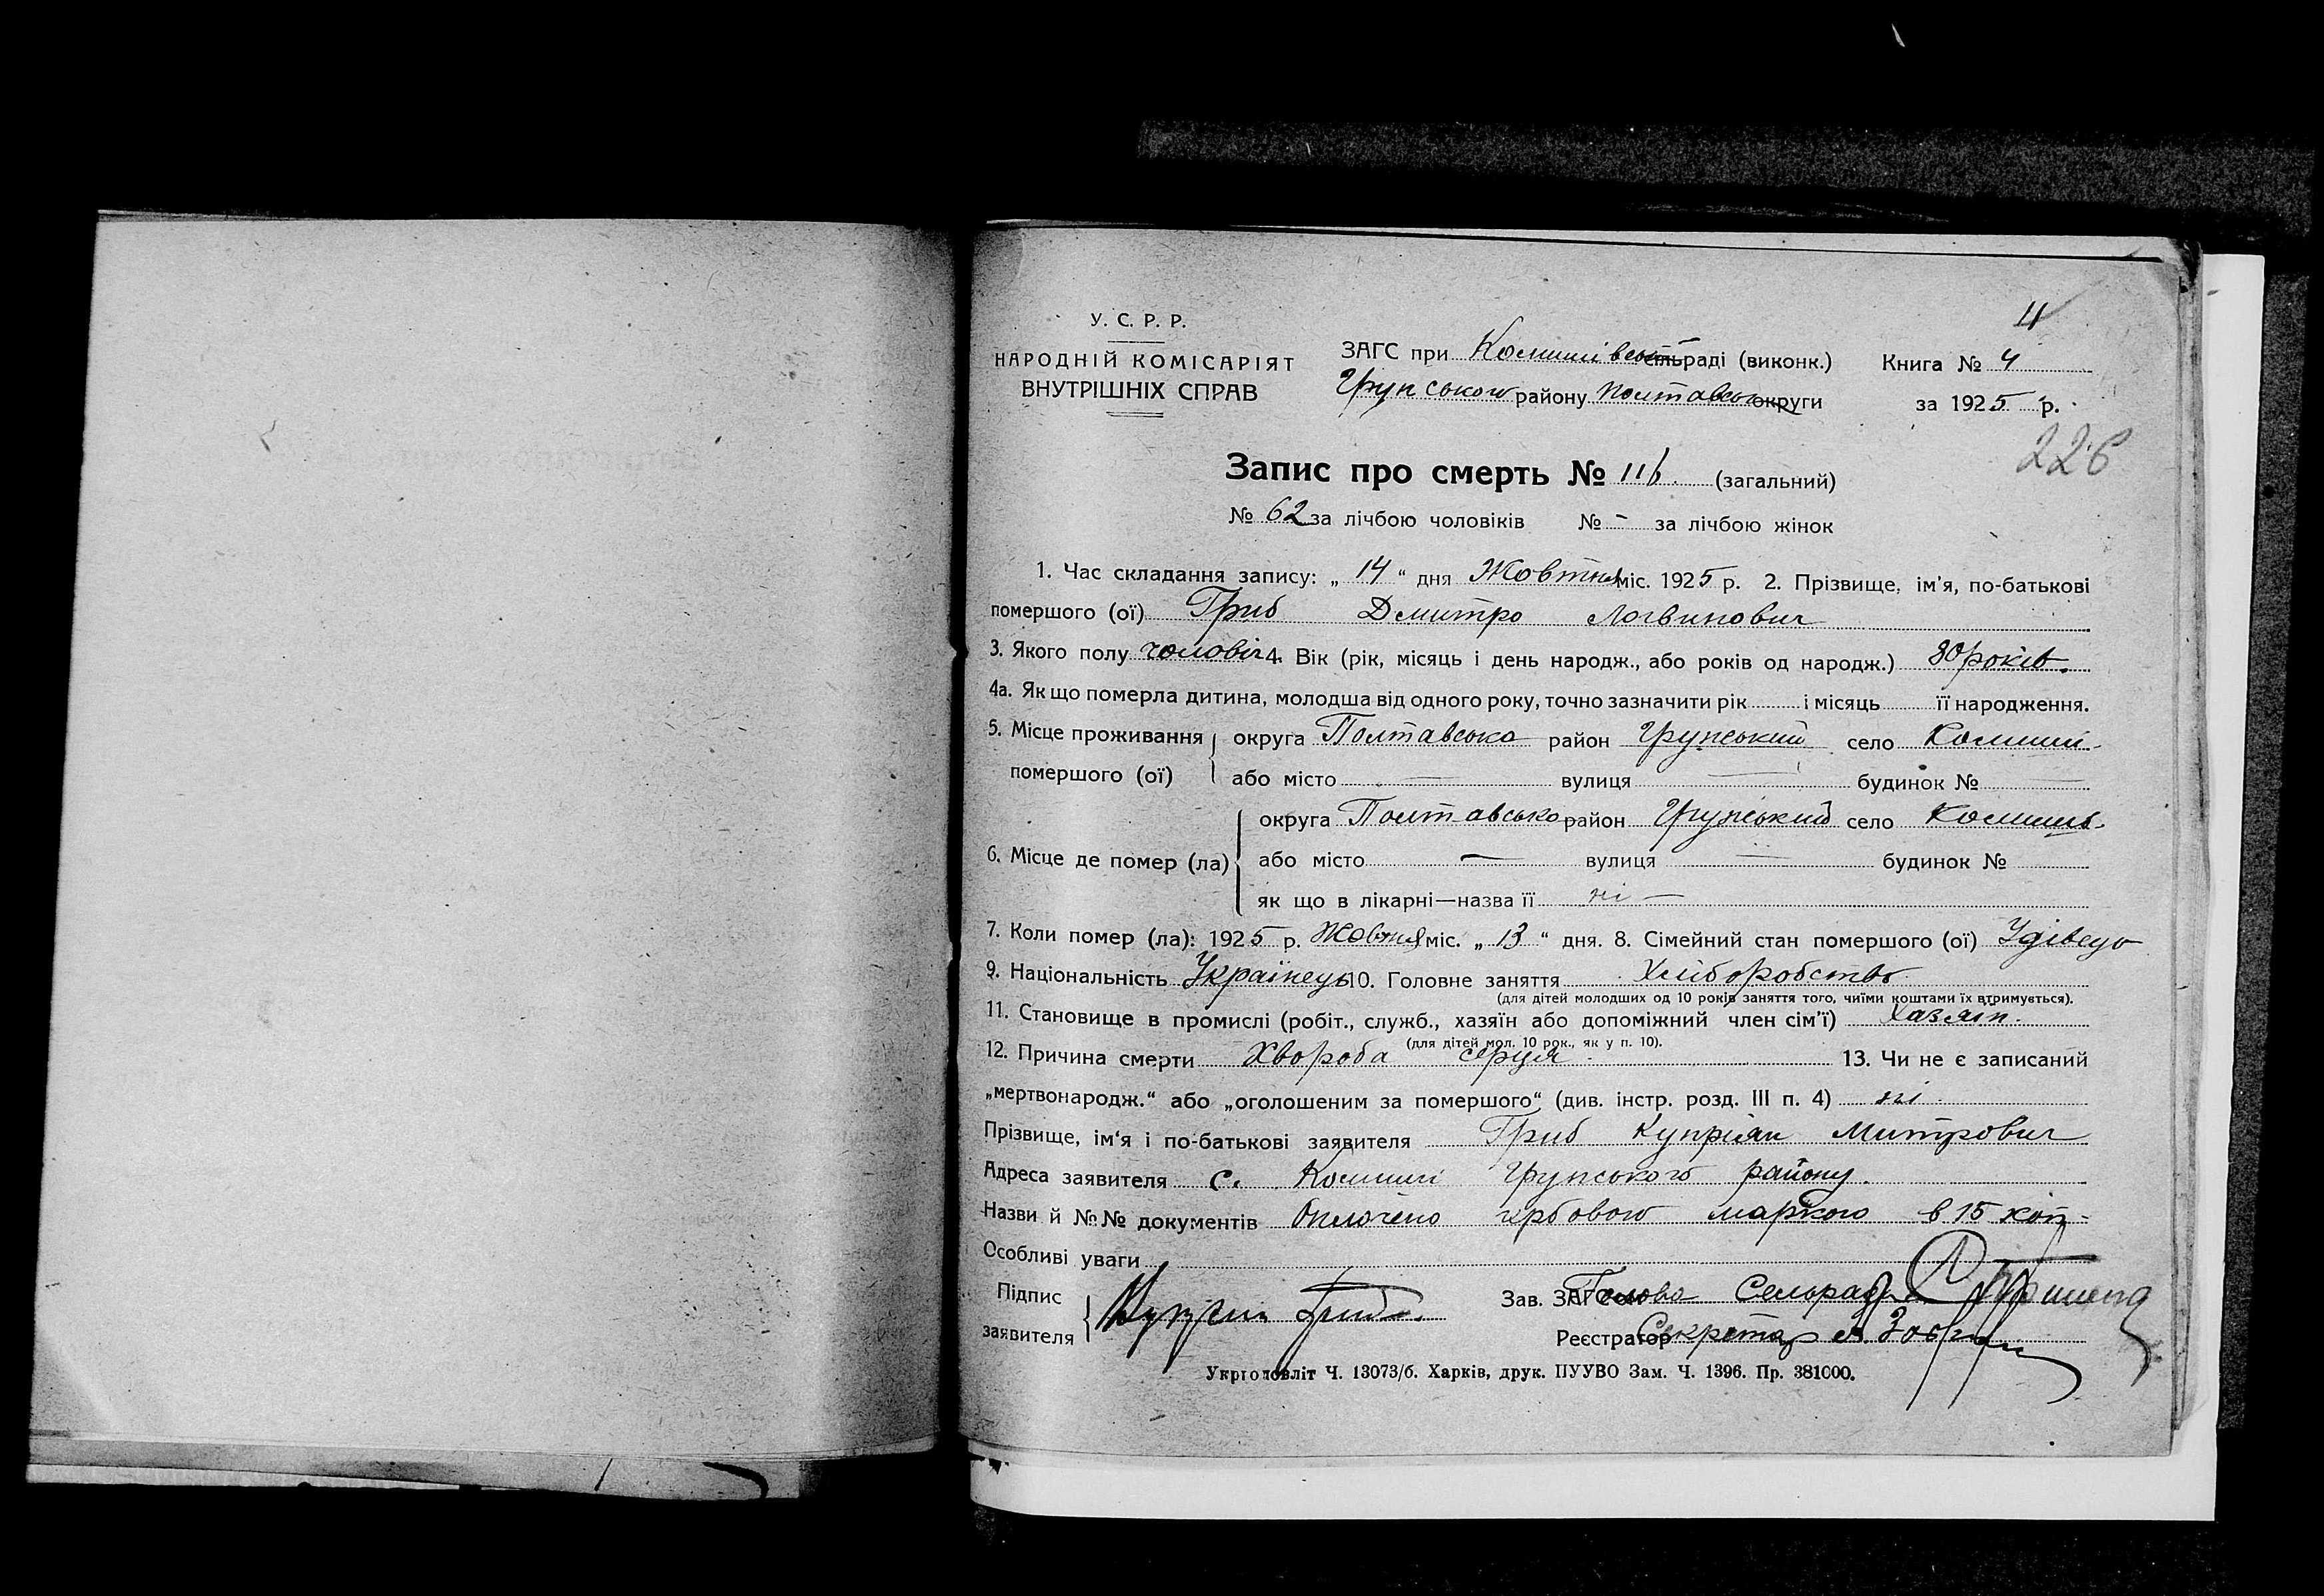 4
У. С. Р. Р.
НАРОДНІЙ КОМІСАРІЯТ
ВНУТРІШНІХ СПРАВ
ЗАГС при Комиші всільраді (виконк.)
Грунського району Полтавської округи
Книга № 4
за 1925 р.
226
Запис про смерть № 116 (загальний)
№ 62 за лічбою чоловіків № - за лічбою жінок
1. Час складання запису: „ 14 “ дня Жовтня міс. 1925 р. 2. Прізвище, ім'я, по-батькові
помершого (ої) Гриб Дмитро Логвинович
3. Якого полу чоловіч 4. Вік (рік, місяць і день народж., або років од народж.) 80 років.
4а. Як що померла дитина, молодша від одного року, точно зазначити рік і місяць її народження.
5. Місце проживання помершого (ої) округа Полтавська район Грунський село Комиші
або місто — вулиця — будинок № —
6. Місце де помер (ла) округа Полтавсько район Грунський село Комишь
або місто — вулиця — будинок №
як що в лікарні—назва її ні —
7. Коли помер (ла): 1925 р. Жовтня міс. „ 13 “ дня. 8. Сімейний стан помершого (ої) Удівець
9. Національність Українець 10. Головне заняття Хліборобство
(для дітей молодших од 10 років заняття того, чиїми коштами їх втримується).
11. Становище в промислі (робіт., служб., хазяїн або допоміжний член сім'ї) Хазяїн.
(для дітей мол. 10 рок., як у п. 10).
12. Причина смерти Хвороба серця. 13. Чи не є записаний
„мертвонародж.“ або „оголошеним за помершого“ (див. інстр. розд. III п. 4) ні.
Прізвище, ім'я і по-батькові заявителя Гриб Купріян Митрович
Адреса заявителя с. Комиші Грунського району.
Назви й №№ документів Оплочено гербовою маркою в 15 коп-
Особливі уваги
Підпис заявителя Гриб.
Зав. ЗАГСом Голова Сельради
Реєстратор Секретар
Укрголовліт Ч. 13073/б. Харків, друк. ПУУВО Зам. Ч. 1396. Пр. 381000.